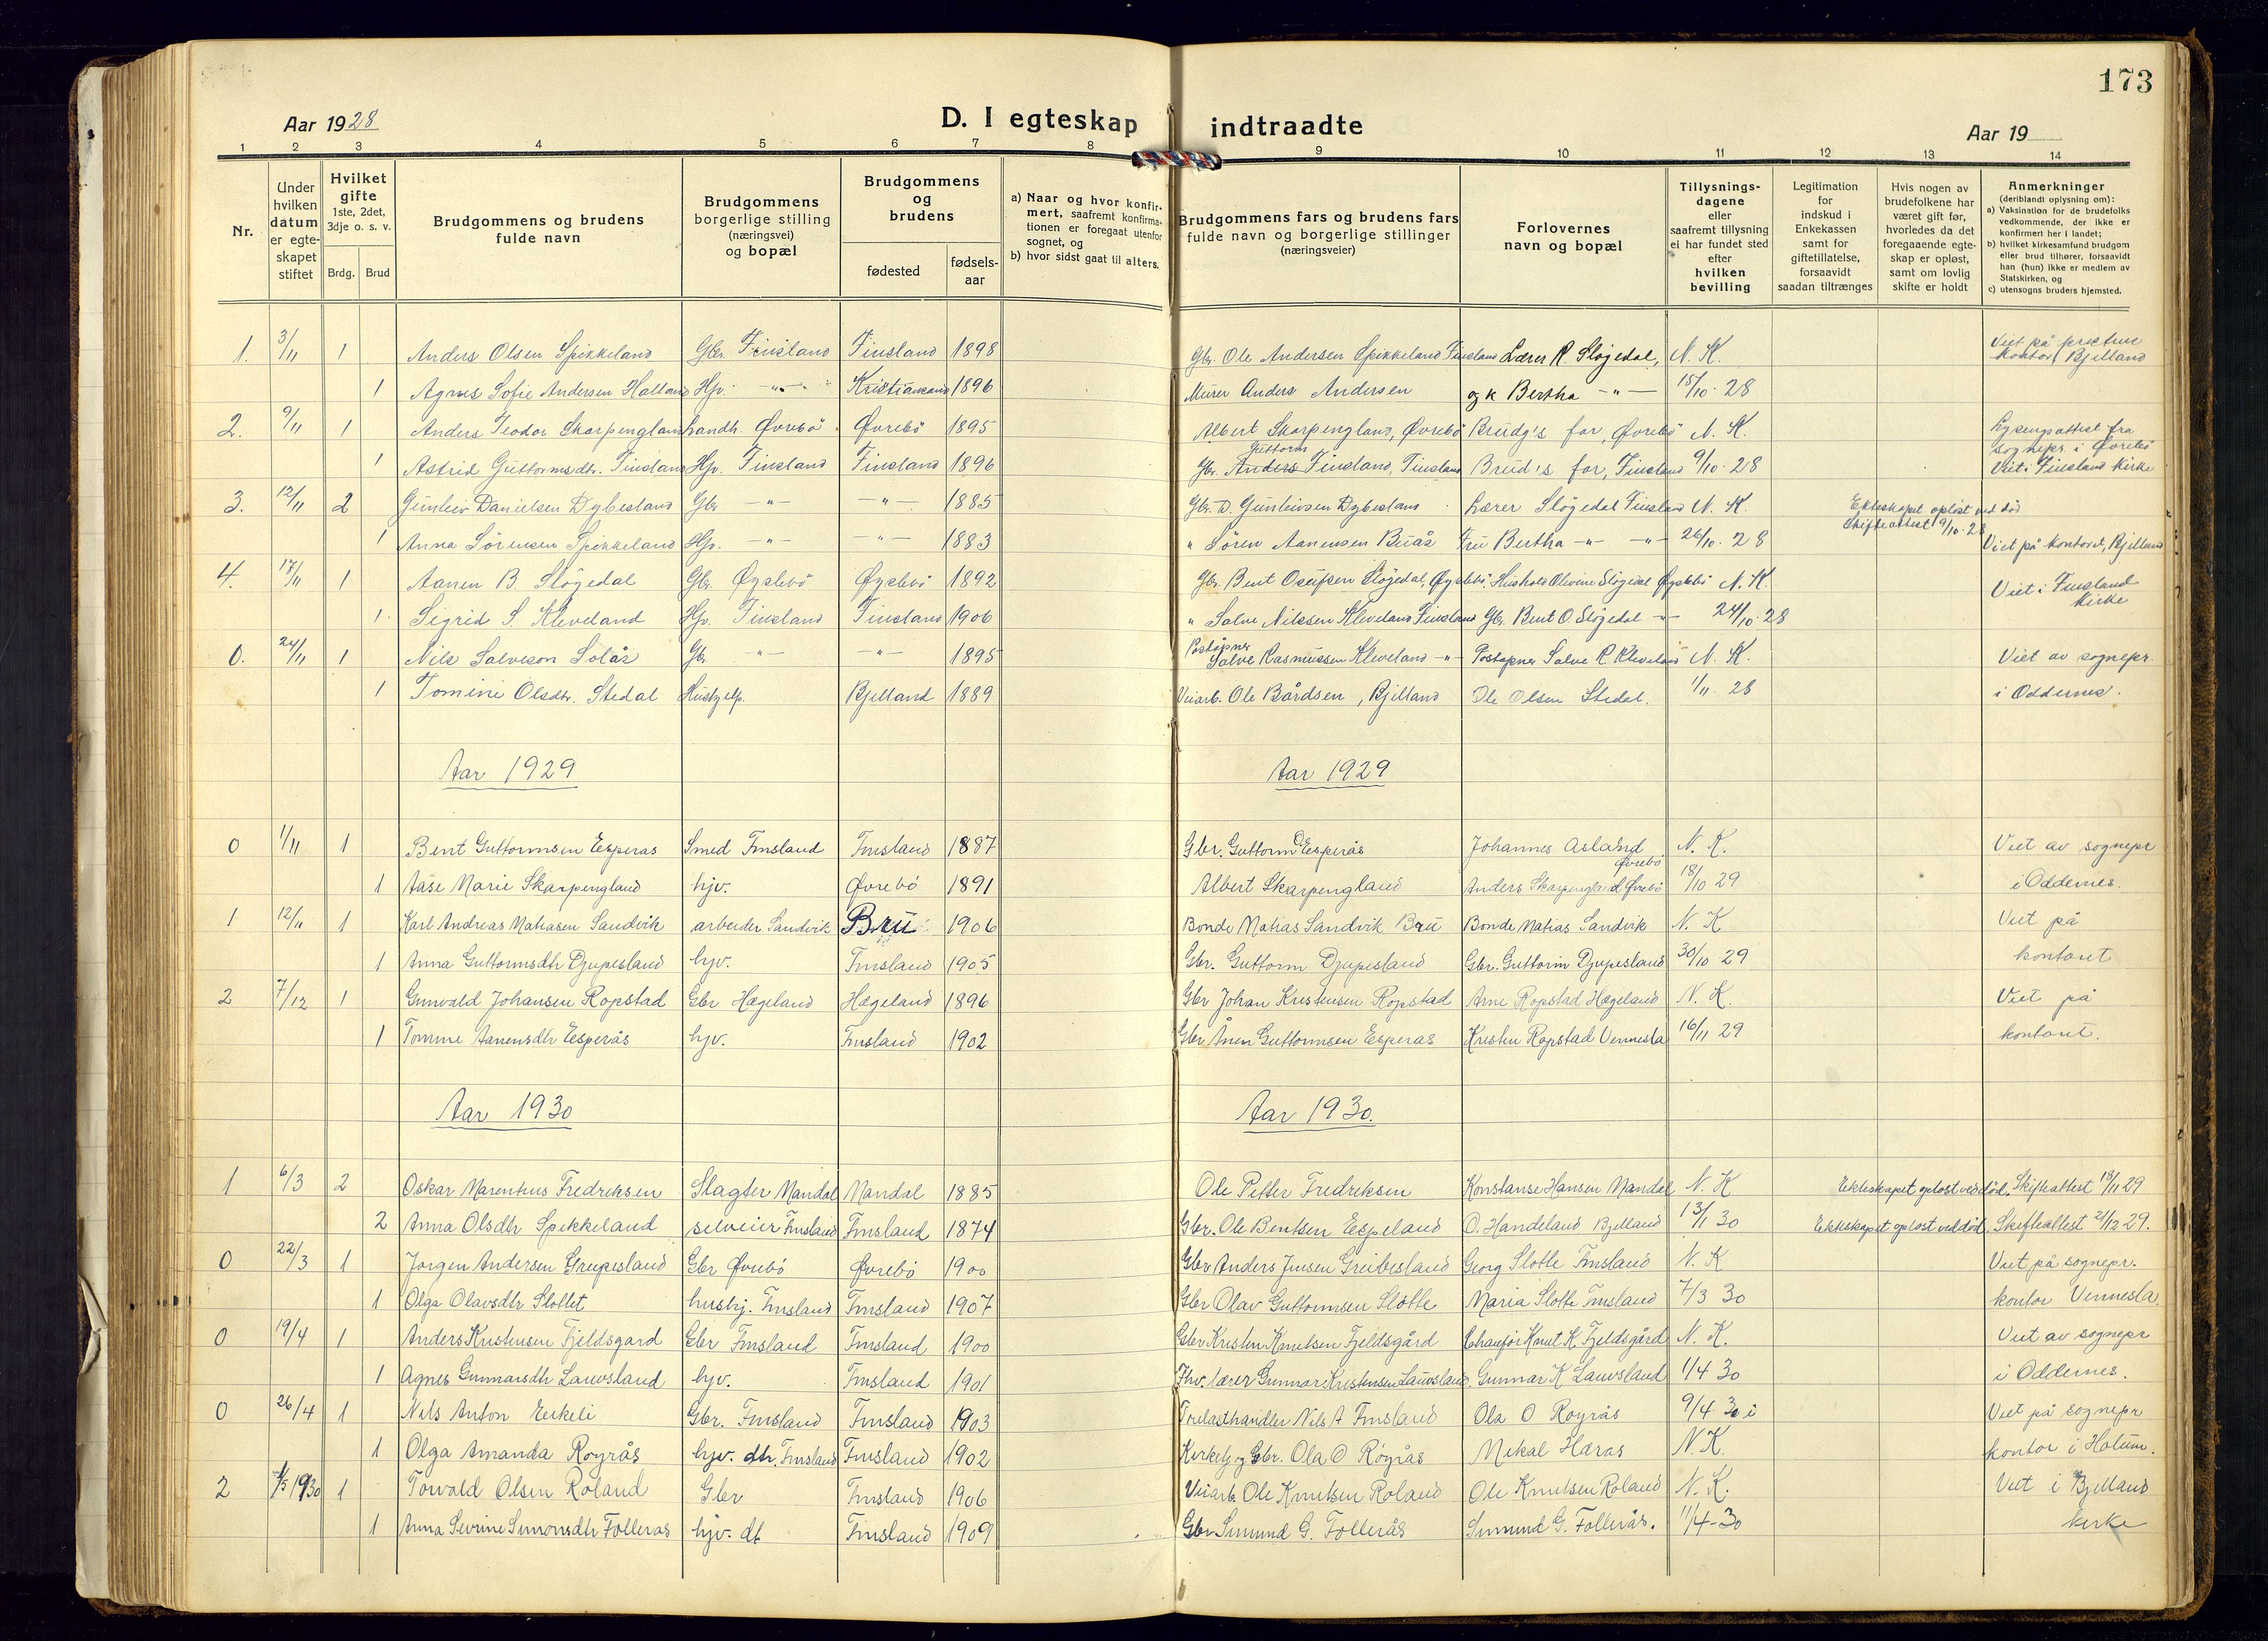 173
Aar 1928
D. I egteskap indtraadte
Aar 19
1 2 3 4 5 6 7 8 9 10 11 12 13 14
Nr.
Under hvilken datum er egteskapet stiftet
Hvilket gifte 1ste, 2det, 3dje o. s. v.
Brdg. Brud
Brudgommens og brudens fulde navn
Brudgommens borgerlige stilling (næringsvei) og bopæl
Brudgommens og brudens
fødested
fødselsaar
a) Naar og hvor konfirmert, saafremt konfirmationen er foregaat utenfor sognet, og
b) hvor sidst gaat til alters.
Brudgommens fars og brudens fars fulde navn og borgerlige stillinger (næringsveier)
Forlovernes navn og bopæl
Tillysningsdagene eller saafremt tillysning ei har fundet sted efter hvilken bevilling
Legitimation for indskud i Enkekassen samt for giftetillatelse, forsaavidt saadan tiltrænges
Hvis nogen av brudefolkene har været gift før, hvorledes da det foregaaende egteskap er opløst, samt om lovlig skifte er holdt
Anmerkninger (deriblandt oplysning om):
a) Vaksination for de brudefolks vedkommende, der ikke er konfirmert her i landet;
b) hvilket kirkesamfund brudgom eller brud tilhører, forsaavidt han (hun) ikke er medlem av Statskirken, og
c) utensogns bruders hjemsted.
1. 3/11 1 Anders Olsen Spikkeland Gbr. Finsland Finsland 1898 Gbr. Ole Andersen Spikkeland Finsland Lærer R. Sløgedal, N. K. Viet på kontor, Bjelland
1 Agnes Sofie Andersen Halland Hjv. -"- Kristiansand 1896 Murer Anders Andersen og k Bertha -"- 15/10. 28
2. 9/11 1 Anders Teodor Skarpengland Landh. Øvrebö Øvrebö 1895 Albert Skarpengland, Øvrebö Brudg's far, Øvrebö N. K. Lysingsattest fra sognepr. i Øvrebö
1 Astrid Guttormsdtr. Finsland Hjv. Finsland Finsland 1896 Gbr. Anders Guttorm Finsland, Finsland Brud's far, Finsland 9/10. 28 Viet i Finsland kirke
3. 12/11 2 Gunleiv Danielsen Dybesland Gbr -"- -"- 1885 Gbr. D. Gunleivsen Dybesland Lærer Slögedal Finsland N. K. Ekteskapet opløst ved död Skifteattest 9/10. 28
1 Anna Sörensen Spikkeland Hjv. -"- -"- 1883 " Sören Aanensen Buås Fru Bertha -"- -"- 26/10. 28 Viet på kontoret, Bjelland
4. 17/11 1 Aanen B. Slögedal Gbr. Øyslebö Øyslebö 1892 Gbr. Bent Osufsen Slögedal, Øyslebö Hushold Olivine Slögedal Øyslebö N. K. Viet i Finsland kirke
1. Sigrid S. Kleveland Hjv. Finsland Finsland 1906 " Salve Nilssen Kleveland Finsland Gbr. Bent O. Slögedal -"- 24/10. 28
0. 24/11 1 Nils Salveson Solås Gbr. -"- -"- 1895 Poståpner Salve Rasmussen Kleveland -"- Poståpner Salve R. Kleveland N. K. Viet av sognepr.
1 Tomine Olsdtr. Stedal Hushjelp. Bjelland 1889 Veiarb. Ole Bårdsen, Bjelland Ole Olsen Stedal. 1/11. 28 i Oddernes.
Aar 1929 Aar 1929
0 1/11 1 Bent Guttormsen Esperås Smed Finsland Finsland 1887 Gbr. Guttorm Esperås Johannes Åsland Øvrebö N. K. Viet av sognepr
1 Aase Marie Skarpengland hjv. Øvrebö 1891 Albert Skarpengland Anders Skarpengland Øvrebö 18/10 29 i Oddernes.
1 12/11 1 Karl Andreas Matiasen Sandvik arbeider Sandvik Bru 1906 Bonde Matias Sandvik Bru Bonde Matias Sandvik N. K Viet på
1 Anna Guttormsdtr Djupesland hjv. Finsland 1905 Gbr. Guttorm Djupesland Gbr. Guttorm Djupesland 30/10 29 kontoret
2 7/12 1 Gunvald Johansen Ropstad Gbr Hægeland Hægeland 1896 Gbr Johan Kristensen Ropstad Arne Ropstad Hægeland N. K. Viet på
1 Tomine Aanensdtr Esperås hjv. Finsland 1902 Gbr Ånen Guttormsen Esperås Kristen Ropstad Vennesla 16/11 29 kontoret.
Aar 1930 Aar 1930.
1 6/3 2 Oskar Marentius Fredriksen Slagter Mandal Mandal 1885 Ole Petter Fredriksen Konstanse Hansen Mandal N. K Ekteskapet opløst ved död. Skifteattest 18/11 29
2 Anna Olsdtr Spikkeland selveier Finsland Finsland 1874 Gbr. Ole Bentsen Espeland O. Handeland Bjelland 13/1 30 Ekteskapet opløst ved död. Skifteattest 21/12 29.
0 22/3 1 Jorgen Andersen Greipesland Gbr Øvrebö Øvrebö 1900 Gbr Anders Jensen Greibesland Georg Slotte Finsland N. K Viet på sognepr.
1 Olga Olavsdtr Slottet hushj. Finsland Finsland 1907 Gbr Olav Guttormsen Slotte Maria Slotte Finsland 7/3 30 kontor Vennesla.
0 19/4 1 Anders Kristensen Fjeldsgard Gbr Finsland Finsland 1900 Gbr Kristen Knutsen Fjeldsgård Chauför Knut K. Fjeldsgård N. K. Viet av sognepr
1 Agnes Gunnarsdtr Lauvsland hjv. Finsland 1901 Fhv. lærer Gunnar Kristensen Lauvsland Gunnar K Lauvsland 1/4 30 i Oddernes.
0 26/4 1 Nils Anton Eikeli Gbr. Finsland Finsland 1903 Trelasthandler Nils A Finsland Ola O Røyrås 9/4 30 Viet på sognepr
1 Olga Amanda Røyrås hjv. dtr. Finsland Finsland 1902 Kirketj. og Gbr. Ola O Røyrås Mikal Haras N. K. kontor i Holum.
2 4/5 1930 1 Torvald Olsen Roland Gbr Finsland 1906 Veiarb. Ole Knutsen Roland Ole Knutsen Roland N. K. Viet i Bjelland
1 Anna Sevrine Simonsdtr Follerås hjv. dt Finsland 1909 Gbr Simund G. Follerås Simund G. Follerås. 11/4-30 kirke